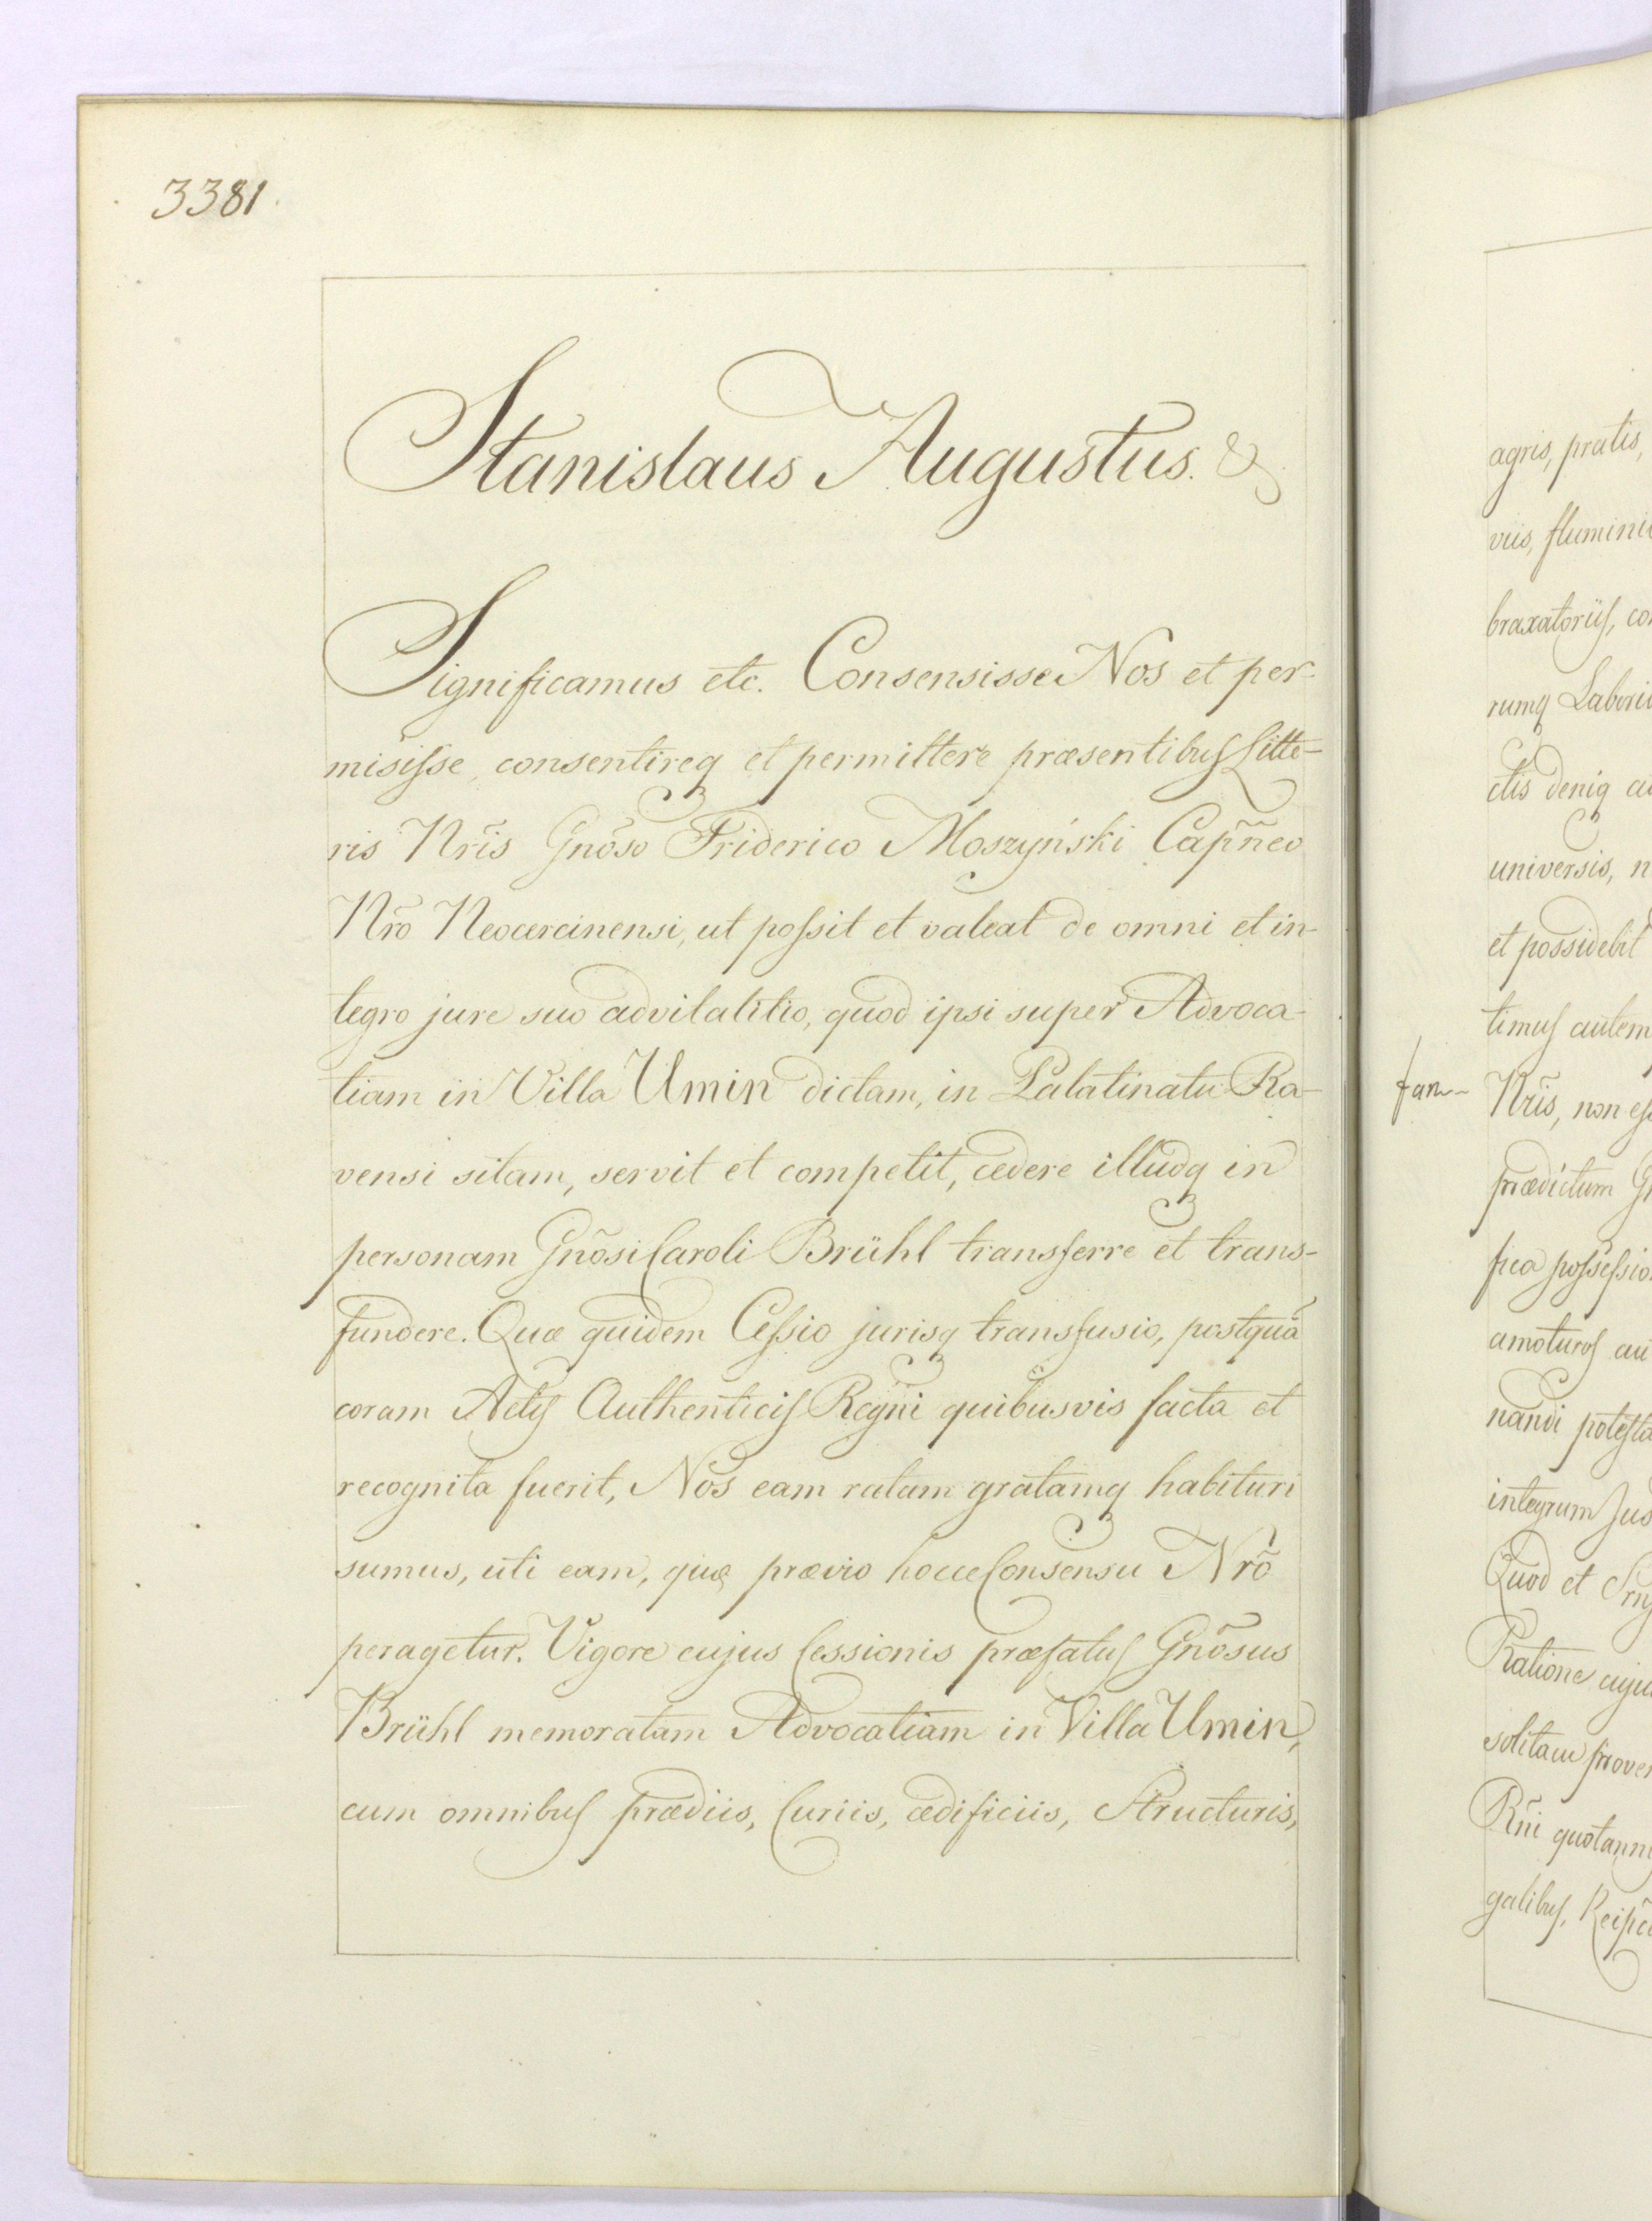 3381.
Stanislaus Augustus. &
Significamus etc. Consensisse Nos et per-
misisse, consentireq et permittere præsentibus Litte-
ris Nr̃is Gnõso Friderico Moszyński Cap̃neo
Nr̃o Neocercinensi, ut possit et valeat de omni et in-
tegro jure suo advitalitio, quod ipsi super Advoca-
tiam in Villa Umin dictam, in Palatinatu Ra-
vensi sitam, servit et competit, cedere illudq in
personam Gnõsi Caroli Brühl transferre et trans-
fundere. Quæ quidem Cessio jurisq transfusio, postquã
coram Actis Authenticis Regni quibusvis facta et
recognita fuerit, Nos eam ratam gratamq habituri
sumus, uti eam, quæ prævio hocce Consensu Nr̃o
peragetur. Vigore cujus Cessionis præfatus Gnõsus
Brühl memoratam Advocatiam in Villa Umin,
cum omnibus prædiis, Curiis, ædificiis, Structuris,
agris, pratis,
viis,
braxatoriis,
rumq
ctis deniq
universis,
et possidebit
timus autem
fan-
Nr̃is, non
prædictum
fica
amoturos
nandi
integrum Jus
Quod et
Ratione
solitam
Rñi
galibus,